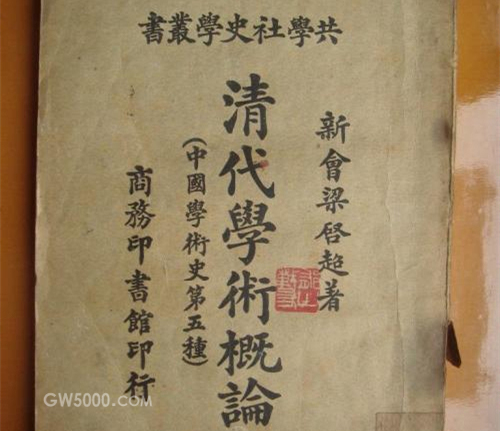 共學社史學叢書
新會梁啓超著
清代學術概論
(中國學術史第五種)
商務印書館印行
GW5000.COM